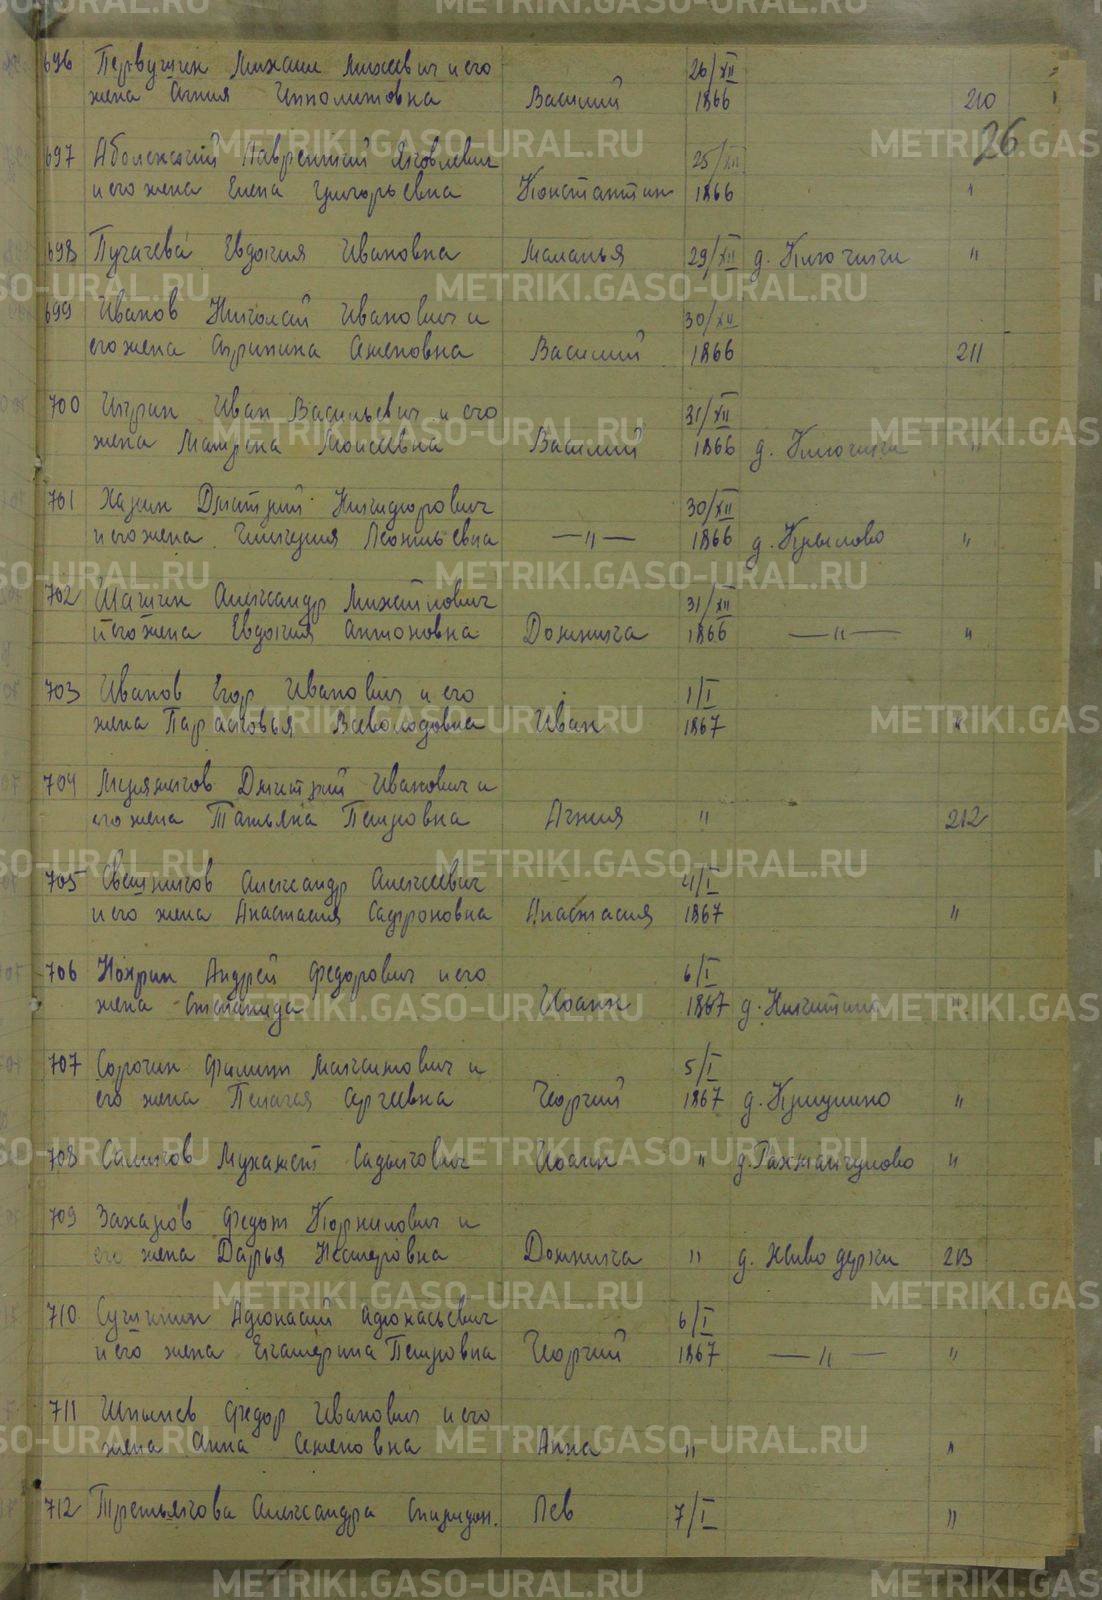 696 Первушин Михаил Михеевич и его 26/XII
жена Агния Ипполитовна Василий 1866 210
26
697 Аболенский Лаврентий Яковлевич 25/XII
и его жена Елена Григорьевна Константин 1866 "
698 Пугачева Евдокия Ивановна Маланья 29/XII д. Ключики "
699 Иванов Николай Иванович и 30/XII
его жена Агрипина Семеновна Василий 1866 211
700 Иван Васильевич и его 31/XII
жена Матрена Моисеевна Василий 1866 д. Ключики "
701 Дмитрий Никифорович 30/XII
и его жена Гликерия Леонтьевна —"— 1866 д. Крылово "
702 Шашин Александр Михайлович 31/XII
и его жена Евдокия Антоновна Домника 1866 —"— "
703 Иванов Егор Иванович и его 1/I
жена Парасковья Всеволодовна Иван 1867 "
704 Мурзников Дмитрий Иванович и
его жена Татьяна Петровна Агния " 212
705 Свешников Александр Алексеевич 4/I
и его жена Анастасия Сафроновна Анастасия 1867 "
706 Нохрин Андрей Федорович и его 6/I
жена Степанида Иоанн 1867 д. Никитина "
707 Сорокин Филипп Максимович и 5/I
его жена Пелагея Сергеевна Георгий 1867 д. Криулино "
708 Салимов Мухамет Садыкович Иоанн " д. Рахмангулово "
709 Захаров Федот Корнилович и
его жена Дарья Нестеровна Домника " д. Живодерки 213
710 Афонасий Афонасьевич 6/I
и его жена Екатерина Петровна Георгий 1867 —"— "
711 Шпынев Федор Иванович и его
жена Анна Семеновна Анна " "
712 Третьякова Александра Спиридон. Лев 7/I "
METRIKI.GASO-URAL.RU